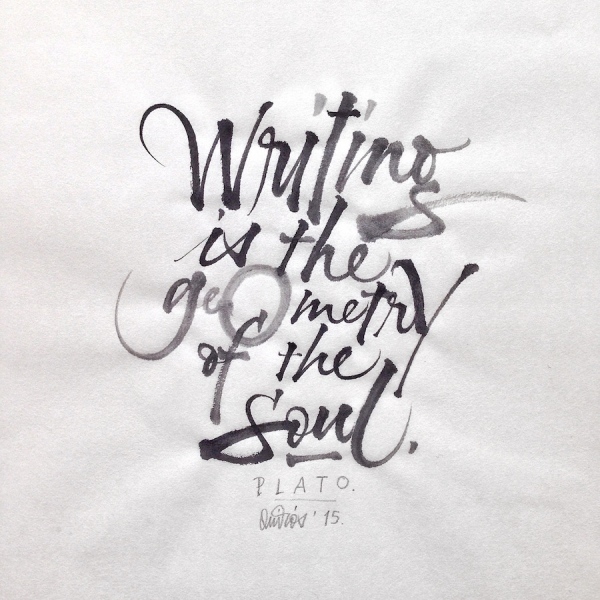 Writing
is the
geometry
of the
soul.
PLATO.
Quirós '15.